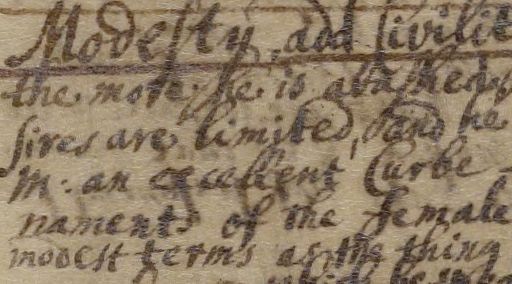 Modesty, and sivilit
the more he is abashed,
sires are limited, and he
M: an excellent Curbe
naments of the female
modest terms as the thing